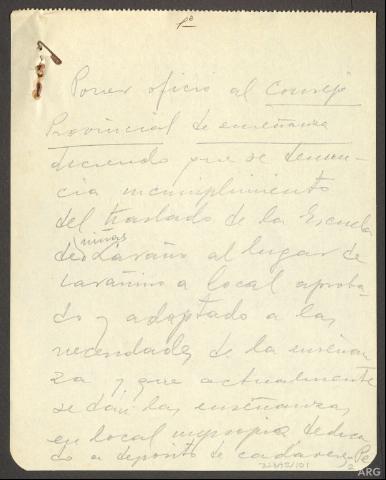 1º
Poner oficio al Consejo
Provincial de enseñanza
diciendo que se denun-
cia incumplimiento
del traslado de la Escuela
niñas
de Laraño al lugar de
a local aproba-
do y adaptado a las
necesidades de la enseñan
za y que actualmente
se dán las enseñanzas
en local impropio, dedica
do a deposito de cadaveres
ARG